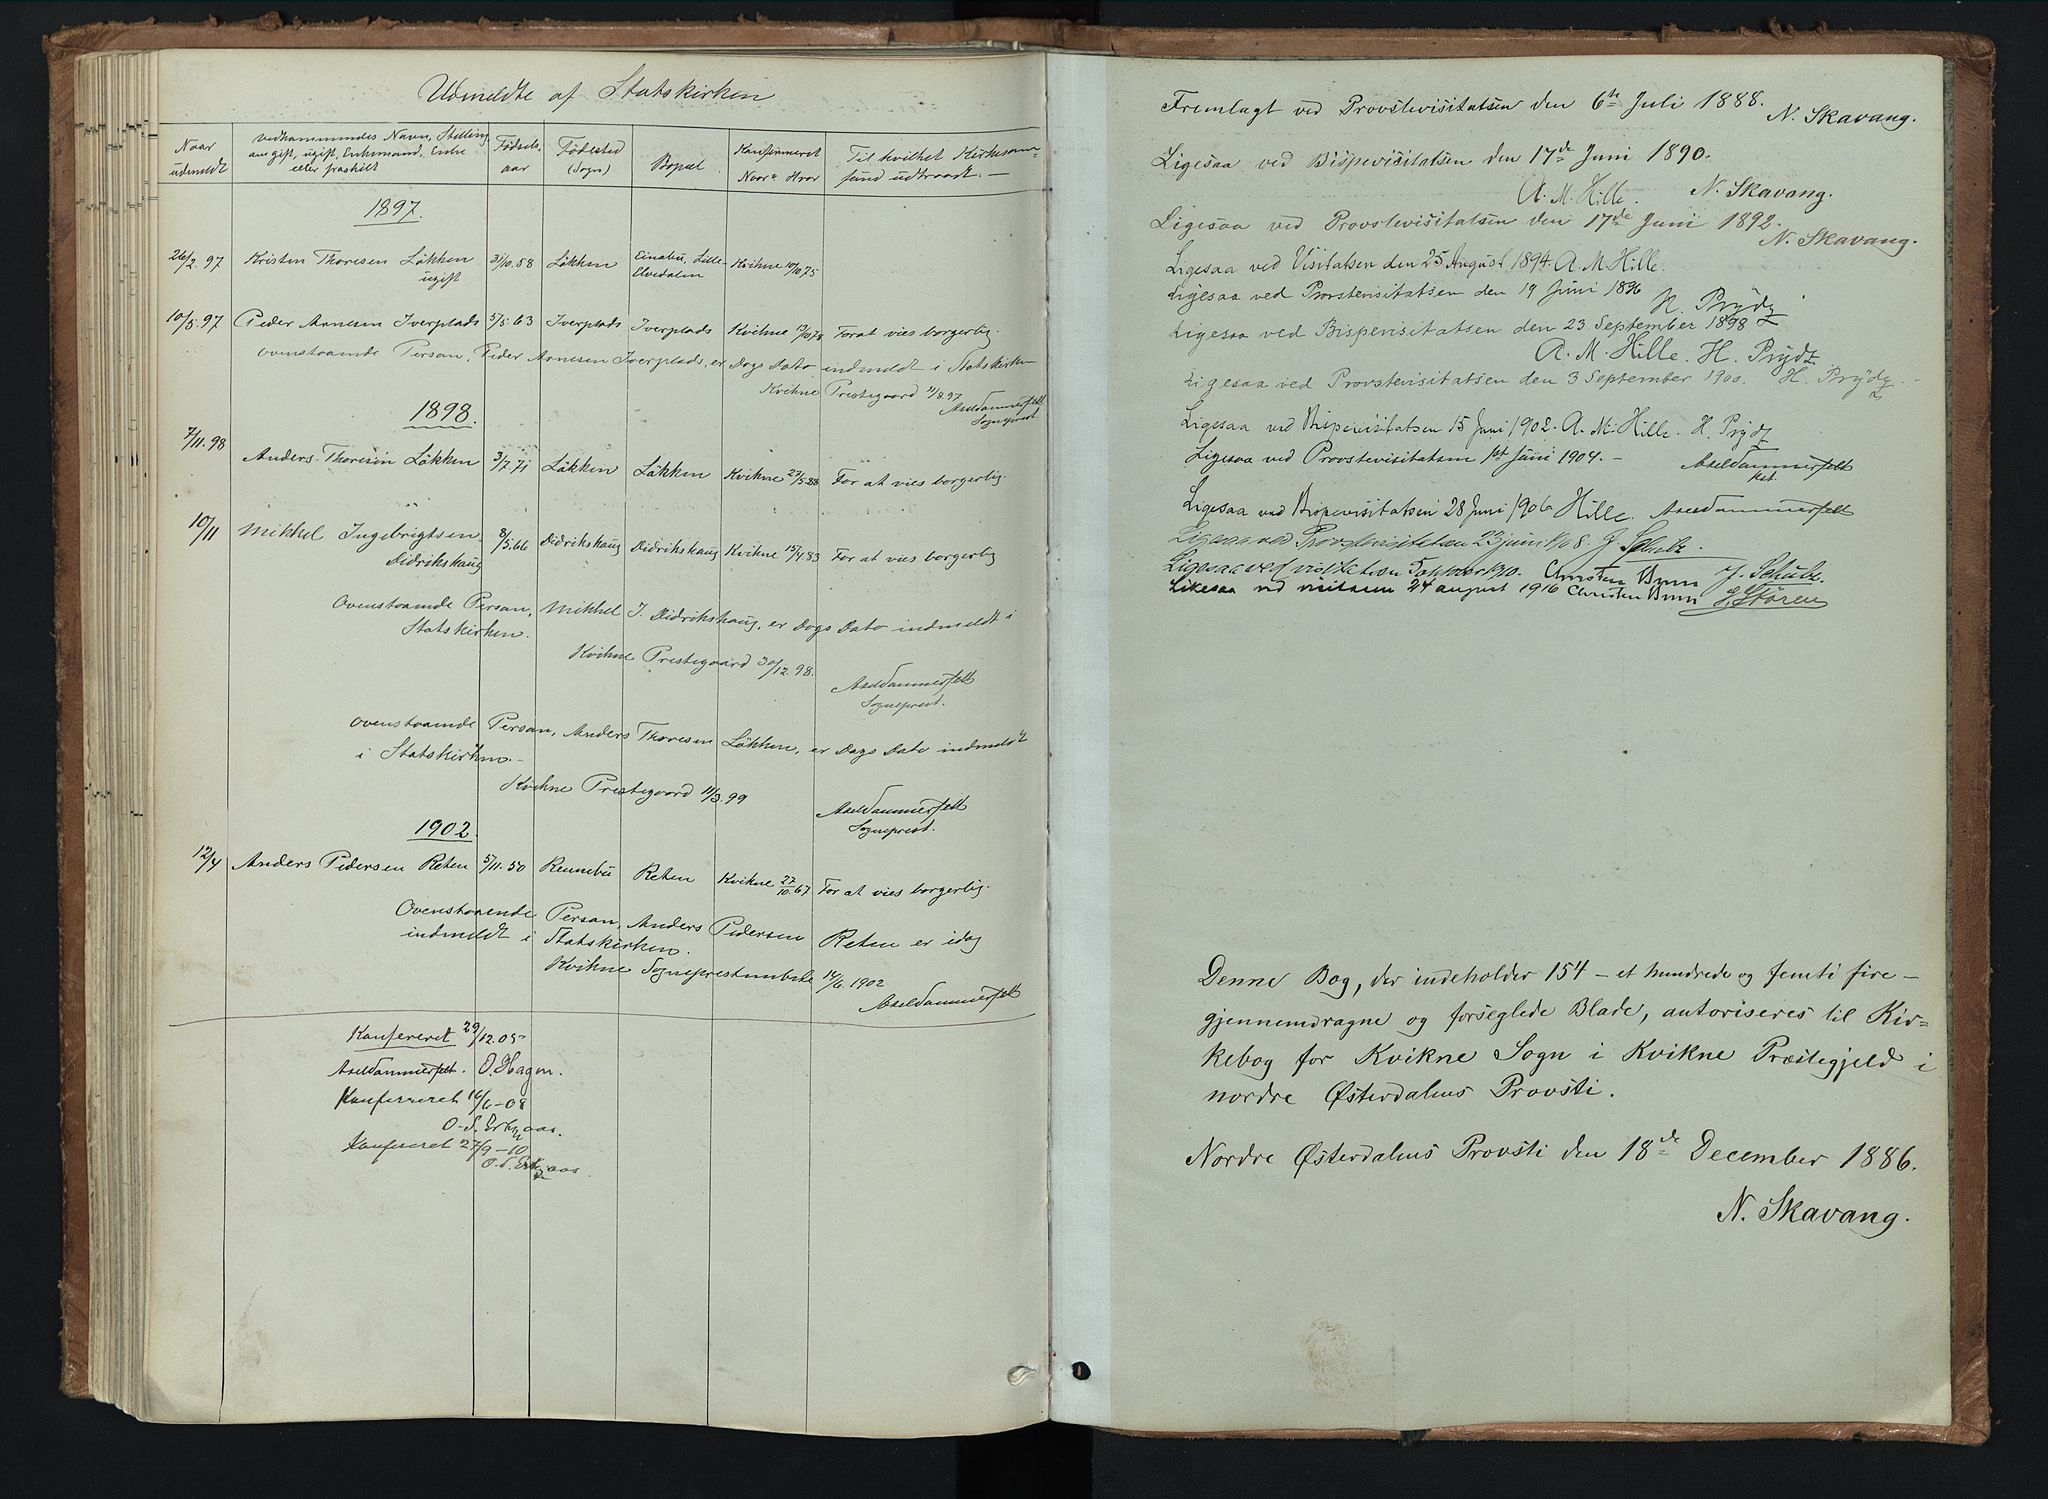 Udmeldte af Statskirken
Naar udmeldt | Vedkommendes Navn, Stilling om gift, ugift, Enkemand, Enke eller fraskilt | Fødsels-aar | Fødested (Sogn) | Bopæl | Konfirmeret Naar & Hvor | Til hvilket Kirkesam=fund udtraadt. —
1897.
26/2. 97 | Kristen Thoresen Løkken ugift | 31/10. 58 | Løkken | Einabu, Lille-Elvedalen | Kvikne 10/10 75
10/5. 97 | Peder Arnesen Iverplads | 5/5. 63 | Iverplads | Iverplads | Kvikne 13/10 78 | For at vies borgerlig.
Ovenstaaende Person, Peder Arnesen Iverplads, er Dags Dato indmeldt i Statskirken
Kvikne Prestegaard 11/8. 97
Axel Dammerfelt
Sogneprest.
1898.
7/11. 98 | Anders Thoresen Løkken | 3/7. 71 | Løkken | Løkken | Kvikne 27/5. 88 | For at vies borgerlig.
10/11 | Mikkel Ingebrigtsen Didrikshaug | 8/5. 66 | Didrikshaug | Didrikshaug | Kvikne 15/4. 83 | For at vies borgerlig
Ovenstaaende Person, Mikkel I. Didrikshaug, er Dags Dato indmeldt i
Statskirken.
Kvikne Prestegaard 30/12. 98.
Axel Dammerfelt
Sogneprest.
Ovenstaaende Person, Anders Thoresen Løkken, er Dags Dato indmeldt
i Statskirken. -
Kvikne Prestegaard 11/3. 99
Axel Dammerfelt
Sogneprest.
1902.
12/4 | Anders Pedersen Reten | 5/11. 50 | Rennebu | Reten | Kvikne 27/10. 67 | For at vies borgerlig.
Ovenstaaende Person, Anders Pedersen Reten er idag
indmeldt i Statskirken.
Kvikne Sogneprestembede 14/6. 1902
Axel Dammerfelt
Konfereret 29/12. 05
Axel Dammerfelt. O. Hagen.
Konfereret 16/6-08
Konfereret 27/9-10
Fremlagt ved Provstevisitatsen den 6te Juli 1888.
N. Skavang.
Ligesaa ved Bispevisitatsen den 17de Juni 1890.
A. M. Hille. N. Skavang.
Ligesaa ved Provstevisitatsen den 17de Juni 1892.
N. Skavang.
Ligesaa ved Visitatsen den 25 August 1894. A. M. Hille.
Ligesaa ved Provstevisitatsen den 19 Juni 1896
H. Prydz
Ligesaa ved Bispevisitatsen den 23 September 1898
A. M. Hille. H. Prydz
Ligesaa ved Provstevisitatsen den 3 September 1900. H. Prydz.
Ligesaa ved Bispevisitatsen 15 Juni 1902. A. M. Hille. H. Prydz
Ligesaa ved Provstevisitatsen 1st Juni 1904. - Axel Dammerfelt
kst.
Ligesaa ved Bispevisitatsen 28 Juni 1906 Hille. Axel Dammerfelt
Ligesaa ved Provstevisitatsen 23 juni 1908. J. Schulz.
Ligesaa ved visitatsen 1910. Christen Brun J. Schulz.
Likesaa ved visitasen 24 august 1916 Christen Brun Støren
Denne Bog, der indeholder 154 – et hundrede og femti fire –
gjennemdragne og forseglede Blade, autoriseres til Kir=
kebog for Kvikne Sogn i Kvikne Præstegjeld i
nordre Østerdalens Provsti.
Nordre Østerdalens Provsti den 18de December 1886.
N. Skavang.